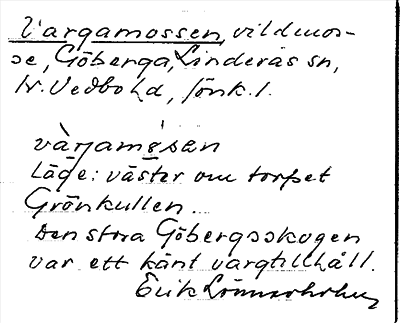 Vargamossen, vildmos-
se, Göberga, Linderås sn,
N. Vedbo hd, Jönk. l.
värjamåsen
Läge: väster om torpet
Grönkullen.
Den stora Göbergsskogen
var ett känt vargtillhåll.
Erik